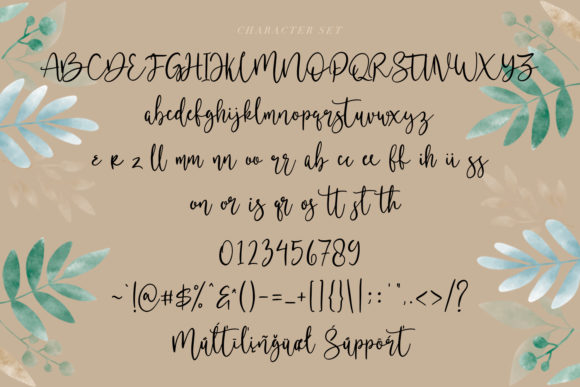 CHARACTER SET
ABCDEFGHIJKLMNOPQRSTUVWXYZ
abcdefghijklmnopqrstuvwxyz
ε R z ll mm nn oo rr ab cc ee ff ih ii ss
on or is qr os tt st th
0123456789
~`!@#$%^&*()-=_+[]{}\|;:'",.<>/?
Múltilįñğúæł Śúppoŕt